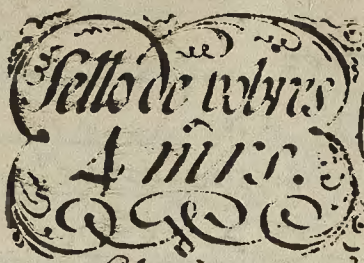 Sello de pobres
4 m̂rs.